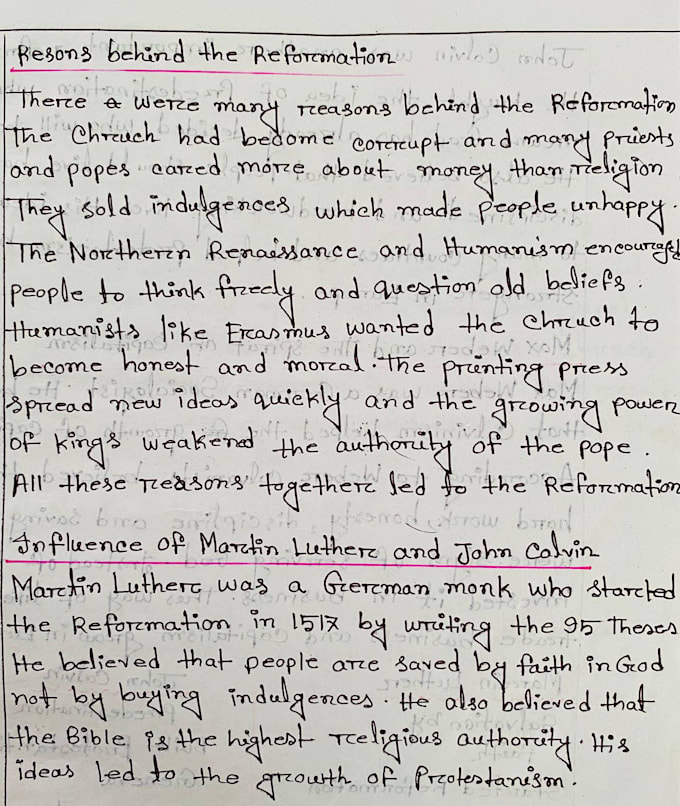 Resons behind the Reformation
There were many reasons behind the Reformation
The Chruch had become corrupt and many priests
and popes cared more about money than religion
They sold indulgences which made people unhappy.
The Northern Renaissance and Humanism encouraged
people to think freely and question old beliefs.
Humanists like Erasmus wanted the Chruch to
become honest and moral. The printing press
spread new ideas quickly and the growing power
of kings weakend the authority of the pope.
All these reasons together led to the Reformation
Influence of Martin Luther and John Calvin
Martin Luther was a German monk who started
the Reformation in 1517 by writing the 95 Theses
He believed that people are saved by faith in God
not by buying indulgences. He also believed that
the Bible is the highest religious authority. His
ideas led to the growth of Protestanism.